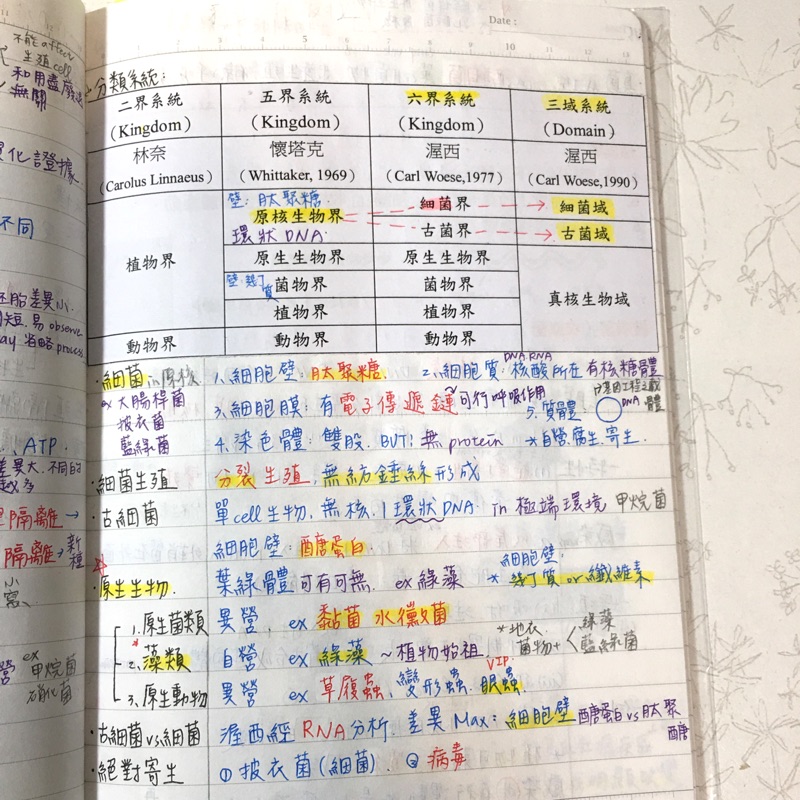 Date :
不能affect
生殖cell
和用盡廢退
無關
化證據
不同
胚胎差異小
短. 易observe
省略process
ATP
差異大. 不同的
隔離→
隔離→新種
ex
甲烷菌
硝化菌
分類系統:
二界系統 (Kingdom) 五界系統 (Kingdom) 六界系統 (Kingdom) 三域系統 (Domain)
林奈 (Carolus Linnaeus) 懷塔克 (Whittaker, 1969) 渥西 (Carl Woese,1977) 渥西 (Carl Woese,1990)
壁: 肽聚糖
原核生物界 細菌界 細菌域
環狀DNA 古菌界 古菌域
植物界 原生生物界 原生生物界
壁:幾丁質 菌物界 菌物界 真核生物域
植物界 植物界
動物界 動物界 動物界
·細菌 in 原核 1.細胞壁: 肽聚糖. 2.細胞質: 核酸所在 有核糖體
DNA.RNA
ex 大腸桿菌 3.細胞膜: 有電子傳遞鏈 可行呼吸作用 5.質體 DNA
披衣菌
藍綠菌 4.染色體: 雙股. BUT: 無 protein *自營.腐生.寄生.
·細菌生殖 分裂生殖, 無紡錘絲形成
·古細菌 單cell生物. 無核. 1環狀DNA in 極端環境 甲烷菌
細胞壁: 醣蛋白.
·原生生物. 葉綠體可有可無. ex 綠藻 * 細胞壁: 幾丁質 or 纖維素
1.原生菌類 異營. ex 黏菌 水黴菌
*地衣: 菌物+ 綠藻 藍綠菌
2.藻類 自營 ex 綠藻 ~植物始祖.
VIP
3.原生動物 異營 ex 草履蟲, 變形蟲. 眼蟲
·古細菌vs細菌 渥西經RNA分析. 差異Max: 細胞壁 醣蛋白vs肽聚醣
·絕對寄生 ① 披衣菌(細菌). ② 病毒